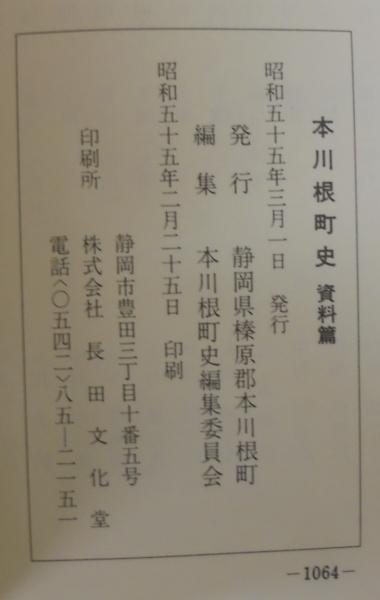 本川根町史 資料篇
昭和五十五年三月一日 発行
発行 静岡県榛原郡本川根町
編集 本川根町史編集委員会
昭和五十五年二月二十五日 印刷
静岡市豊田三丁目十番五号
印刷所 株式会社 長田文化堂
電話〈〇五四二〉八五―二一五一
―1064―